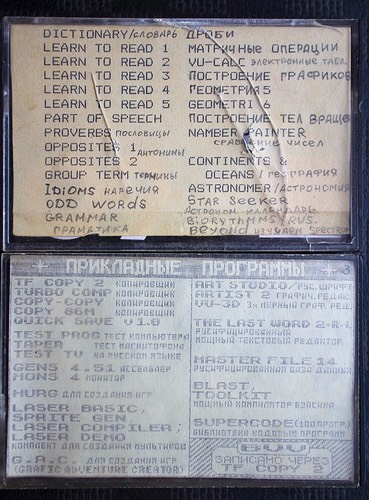 DICTIONARY/словарь
LEARN TO READ 1
LEARN TO READ 2
LEARN TO READ 3
LEARN TO READ 4
LEARN TO READ 5
PART OF SPEECH
PROVERBS пословицы
OPPOSITES 1
OPPOSITES 2 АНТОНИМЫ
GROUP TERM ТЕРМИНЫ
IDIOMS НАРЕЧИЯ
ODD WORDS
GRAMMAR
ГРАМАТИКА
ДРОБИ
МАТРИЧНЫЕ ОПЕРАЦИИ
VU-CALC ЭЛЕКТРОННЫЕ ТАБЛ.
ПОСТРОЕНИЕ ГРАФИКОВ
ГЕОМЕТРИЯ 5
GEOMETRI 6
ПОСТРОЕНИЕ ТЕЛ ВРАЩЕ
NAMBER PAINTER
СРАВНЕНИЕ ЧИСЕЛ
CONTINENTS &
OCEANS ГЕОГРАФИЯ
ASTRONOMER/АСТРОНОМИЯ
STAR SEEKER
АСТРОНОМ. КАЛЕНДАРЬ
BIORYTHMYS/RUS.
BEYOND ИЗУЧАЕМ SPECTRUM
* ПРИКЛАДНЫЕ ПРОГРАММЫ * 3
TF COPY 2 КОПИРОВЩИК
TURBO COMP КОПИРОВЩИК
COPY-COPY КОПИРОВЩИК
COPY 86M КОПИРОВЩИК
QUICK SAVE v1.0
TEST PROG ТЕСТ КОМПЬЮТЕРА
TAPER ТЕСТ МАГНИТОФОНА
TEST TV НА РУССКОМ ЯЗЫКЕ
GENS 4.51 АССЕМБЛЕР
MONS 4 МОНИТОР
HURG ДЛЯ СОЗДАНИЯ ИГР
LASER BASIC,
SPRITE GEN
LASER COMPILER,
LASER DEMO
КОМПЛЕКТ ДЛЯ СОЗДАНИЯ МУЛЬТИКОВ
G.A.C. ДЛЯ СОЗДАНИЯ ИГР
(GRAFIC ADVENTURE CREATOR)
ART STUDIO/РУС.ШРИФТ
ARTIST 2 ГРАФИЧ. РЕДАК.
VU-3D 3х МЕРНЫЙ ГРАФ. РЕД.
THE LAST WORD 2-R-L
РУСИФИЦИРОВАННЫЙ
МОЩНЫЙ ТЕКСТОВЫЙ РЕДАКТОР
MASTER FILE 14
РУСИФИЦИРОВАННАЯ БАЗА ДАННЫХ
BLAST,
TOOLKIT
МОЩНЫЙ КОМПИЛЯТОР БЭЙСИКА
SUPERCODE(100ПРОГР.)
БИБЛИОТЕКА КОДОВЫХ ПРОГРАММ
ЗАПИСАНО ЧЕРЕЗ
TF COPY 2